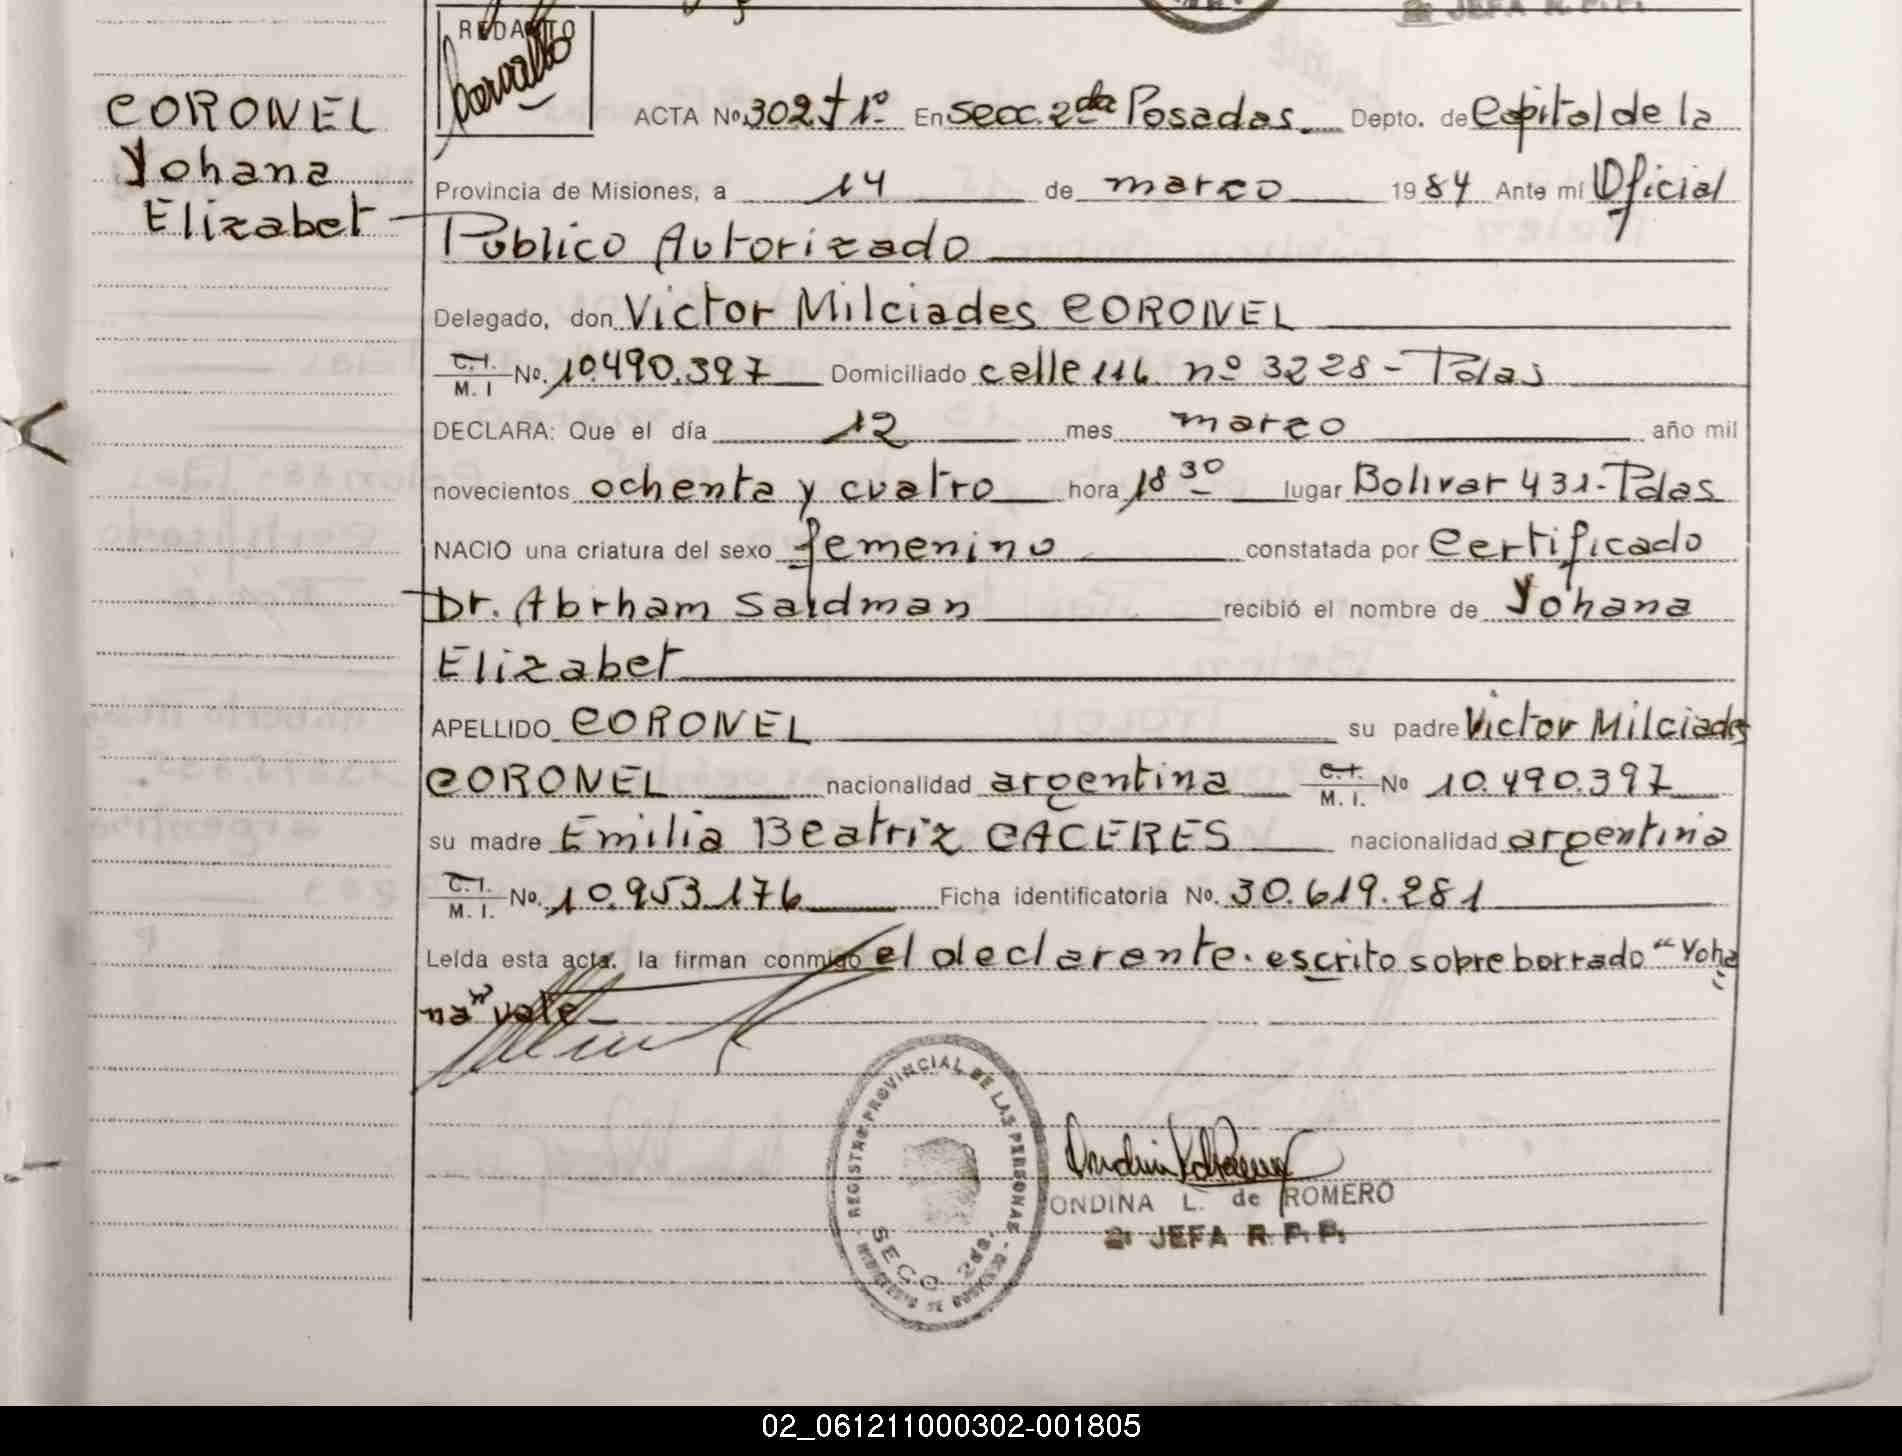 JEFA R. P. P.
REDACTO
Carvallo
CORONEL
Yohana
Elizabet
ACTA No. 302 T 1º En Secc. 2da Posadas Depto. de Capital de la
Provincia de Misiones, a 14 de marzo 1984 Ante mi Oficial
Publico Autorizado
Delegado, don Victor Milciades CORONEL
C.I. M. I No. 10.490.397 Domiciliado calle 116 nº 3228 - Pdas
DECLARA: Que el día 12 mes marzo año mil
novecientos ochenta y cuatro hora 18 30 lugar Bolivar 431-Pdas
NACIO una criatura del sexo femenino constatada por Certificado
Dr. Abrham Saidman recibió el nombre de Yohana
Elizabet
APELLIDO CORONEL su padre Victor Milciades
CORONEL nacionalidad argentina C.I. M. I. No 10.490.397
su madre Emilia Beatriz CACERES nacionalidad argentina
C.I. M. I. No. 10.953.176 Ficha identificatoria No. 30.619.281
Leída esta acta. la firman conmigo el declarante. escrito sobre borrado "Yoha
na" vale
REGISTRO PROVINCIAL DE LAS PERSONAS
SECC. 2da.
ONDINA L. de ROMERO
JEFA R. P. P.
02_061211000302-001805